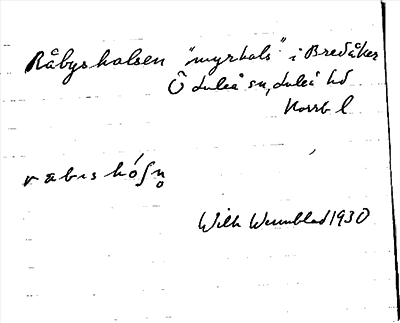 Råbyshalsen "myrhals" i Bredåker
Ö Luleå sn, Luleå hd
Norrb l
Wilh Wennblad 1930